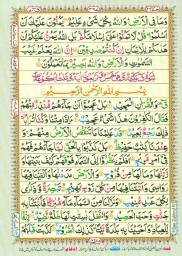 وَمَا فِي الْاَرْضِ وَاللّٰهُ بِكُلِّ شَيْءٍ عَلِيْمٌ يَمُنُّوْنَ عَلَيْكَ اَنْ
اَسْلَمُوْا قُلْ لَّا تَمُنُّوْا عَلَيَّ اِسْلَامَكُمْ بَلِ اللّٰهُ يَمُنُّ عَلَيْكُمْ اَنْ
هَدٰىكُمْ لِلْاِيْمَانِ اِنْ كُنْتُمْ صٰدِقِيْنَ اِنَّ اللّٰهَ يَعْلَمُ غَيْبَ
السَّمٰوٰتِ وَالْاَرْضِ وَاللّٰهُ بَصِيْرٌۢ بِمَا تَعْمَلُوْنَ
بِسْمِ اللّٰهِ الرَّحْمٰنِ الرَّحِيْمِ
قٓ وَالْقُرْاٰنِ الْمَجِيْدِ بَلْ عَجِبُوْٓا اَنْ جَآءَهُمْ مُّنْذِرٌ مِّنْهُمْ
فَقَالَ الْكٰفِرُوْنَ هٰذَا شَيْءٌ عَجِيْبٌ ءَاِذَا مِتْنَا وَكُنَّا تُرَابًا ذٰلِكَ
رَجْعٌۢ بَعِيْدٌ قَدْ عَلِمْنَا مَا تَنْقُصُ الْاَرْضُ مِنْهُمْ وَعِنْدَنَا كِتٰبٌ
حَفِيْظٌ بَلْ كَذَّبُوْا بِالْحَقِّ لَمَّا جَآءَهُمْ فَهُمْ فِيْٓ اَمْرٍ مَّرِيْجٍ
اَفَلَمْ يَنْظُرُوْٓا اِلَى السَّمَآءِ فَوْقَهُمْ كَيْفَ بَنَيْنٰهَا
وَزَيَّنّٰهَا وَمَا لَهَا مِنْ فُرُوْجٍ وَالْاَرْضَ مَدَدْنٰهَا وَاَلْقَيْنَا فِيْهَا
رَوَاسِيَ وَاَنْۢبَتْنَا فِيْهَا مِنْ كُلِّ زَوْجٍۢ بَهِيْجٍ تَبْصِرَةً وَّذِكْرٰى لِكُلِّ
عَبْدٍ مُّنِيْبٍ وَنَزَّلْنَا مِنَ السَّمَآءِ مَآءً مُّبٰرَكًا فَاَنْۢبَتْنَا بِهٖ جَنّٰتٍ
وَّحَبَّ الْحَصِيْدِ وَالنَّخْلَ بٰسِقٰتٍ لَّهَا طَلْعٌ نَّضِيْدٌ رِّزْقًا
لِّلْعِبَادِ وَاَحْيَيْنَا بِهٖ بَلْدَةً مَّيْتًا كَذٰلِكَ الْخُرُوْجُ كَذَّبَتْ قَبْلَهُمْ